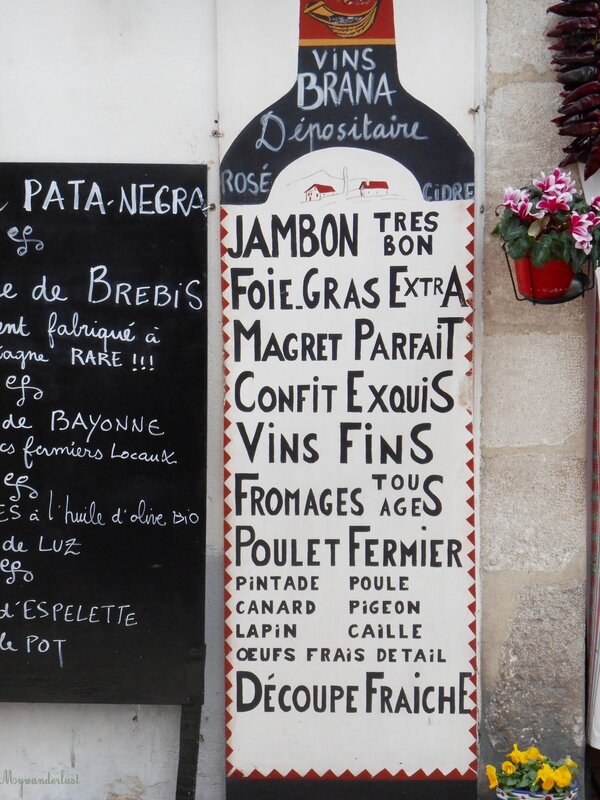 PATA-NEGRA
e de BREBIS
ent fabriqué à
tagne RARE !!!
de BAYONNE
cs fermiers Locaux
ES à l'huile d'olive BIO
de LUZ
d'ESPELETTE
le POT
VINS
BRANA
Dépositaire
ROSÉ
CIDRE
JAMBON TRES BON
FOIE-GRAS EXTRA
MAGRET PARFAIT
CONFIT EXQUIS
VINS FINS
FROMAGES TOUS AGES
POULET FERMIER
PINTADE POULE
CANARD PIGEON
LAPIN CAILLE
ŒUFS FRAIS DETAIL
DÉCOUPE FRAICHE
Mywanderlust